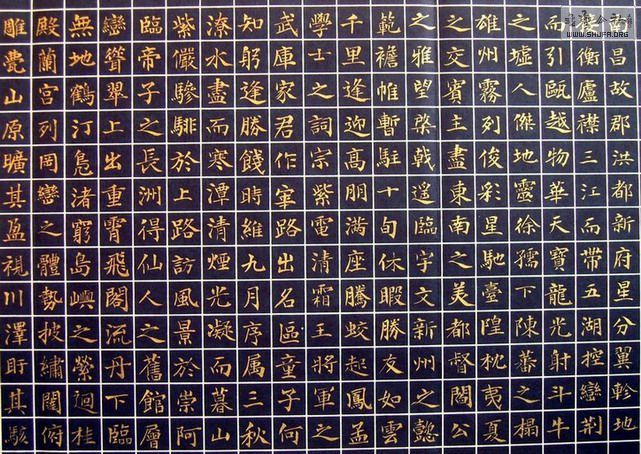 南昌故郡洪都新府星分翼軫地
衡廬襟三江而帶五湖控蠻荊
而引甌越物華天寶龍光射斗牛
之墟人傑地靈徐孺下陳蕃之榻
雄州霧列俊彩星馳臺隍枕夷夏
之交賓主盡東南之美都督閻公
之雅望棨戟遙臨宇文新州之懿
範襜帷暫駐十旬休暇勝友如雲
千里逢迎高朋滿座騰蛟起鳳孟
學士之詞宗紫電清霜王將軍之
武庫家君作宰路出名區童子何
知躬逢勝餞時維九月序属三秋
潦水盡而寒潭清煙光凝而暮山
紫儼驂騑於上路訪風景於崇阿
臨帝子之長洲得仙人之舊館層
巒聳翠上出重霄飛閣流丹下臨
無地鶴汀鳧渚窮島嶼之縈迴桂
殿蘭宮列岡巒之體勢披繡闥俯
雕甍山原曠其盈視川澤盱其駭
WWW.SHUFA.ORG